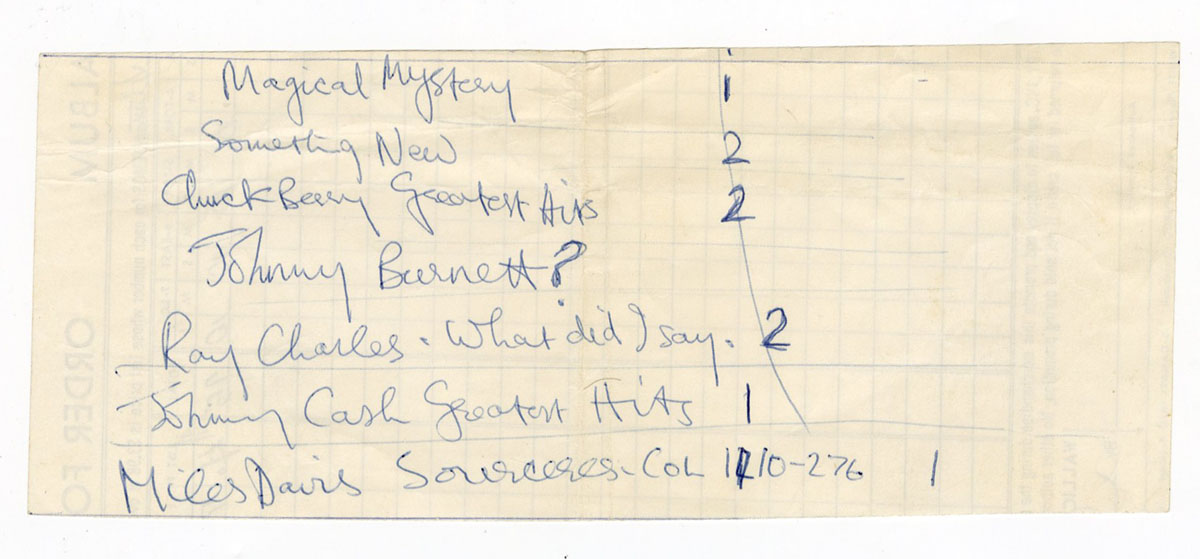 Magical Mystery 1
Something New 2
Chuck Berry Greatest Hits 2
Johnny Burnett?
Ray Charles. What did I say. 2
Johnny Cash Greatest Hits 1
Miles Davis Sourceres - COL 1110-276 1
ALBUM
ORDER FO